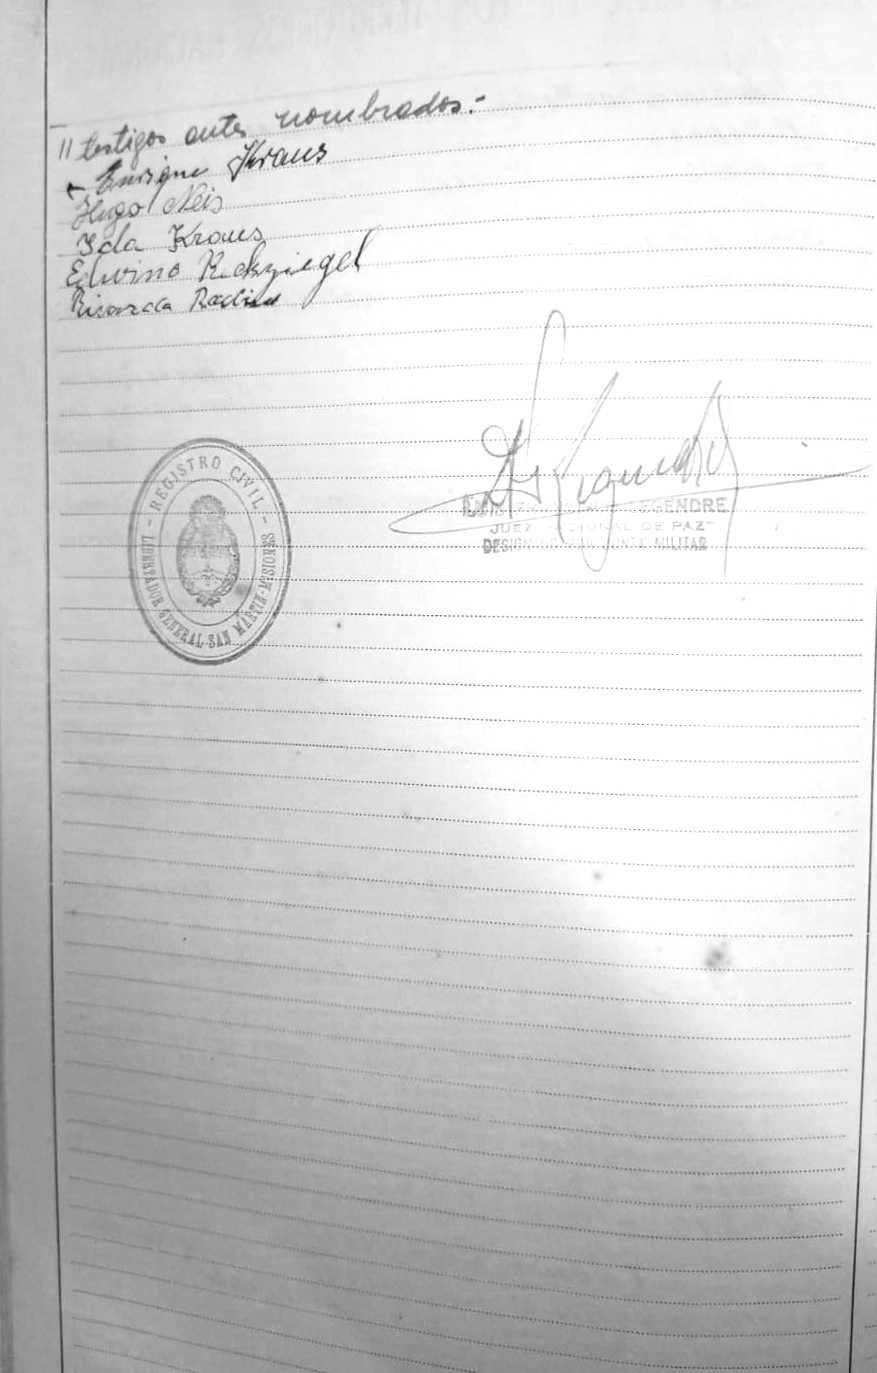 // testigos antes nombrados:-
Enrique Kraus
Hugo Neis
Ida Kraus
Edvino Reckziegel
Ricarda
REGISTRO CIVIL
LIBERTADOR GENERAL SAN MARTIN - MISIONES
LEGENDRE
JUEZ NACIONAL DE PAZ
DESIGNADO POR JUNTA MILITAR